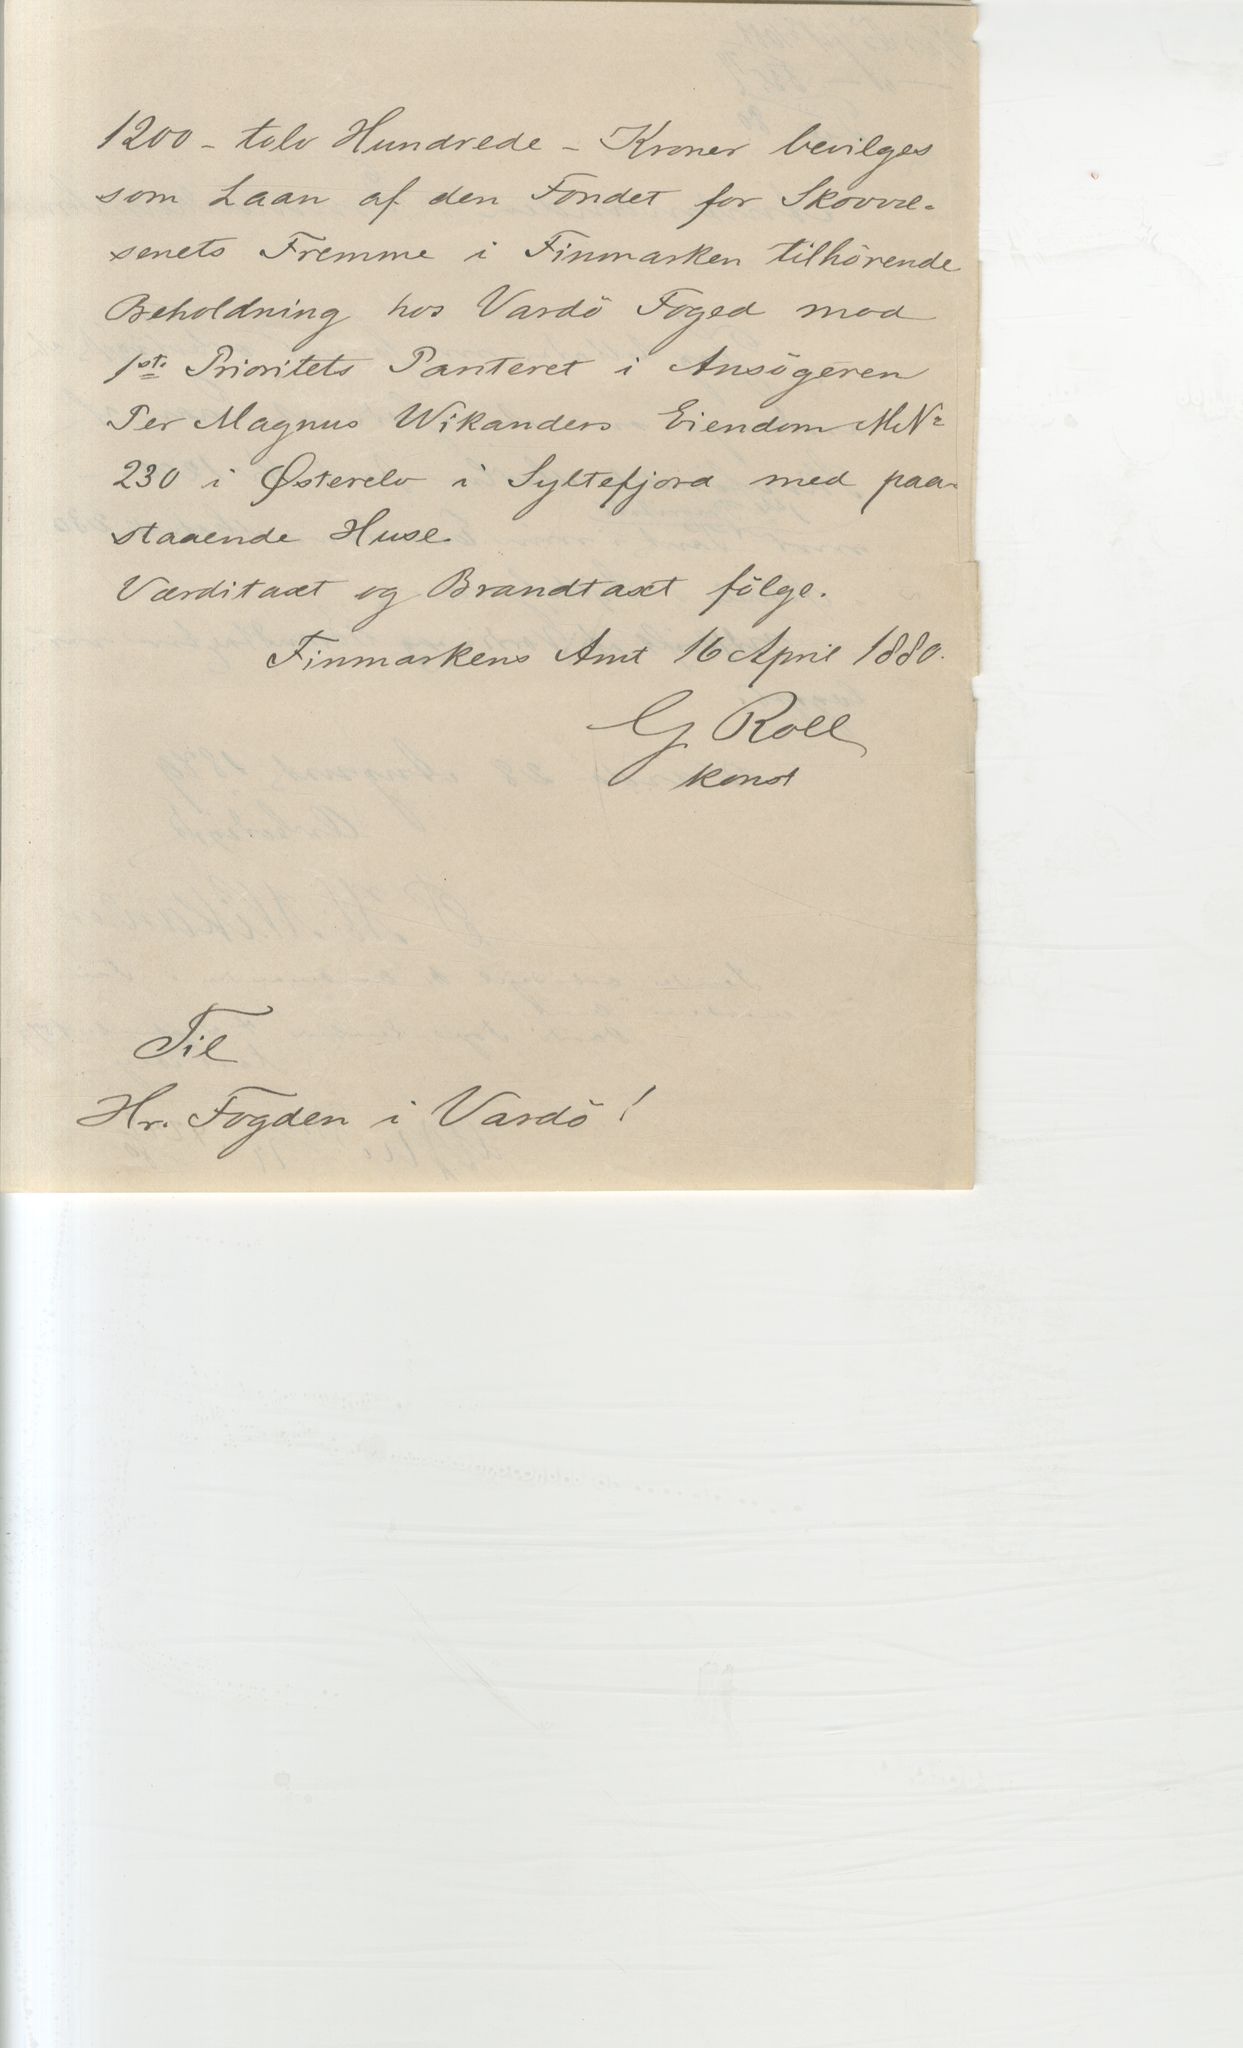 1200 - tolv Hundrede - Kroner bevilges
som Laan af den Fondet for Skovvæ-
senets Fremme i Finmarken tilhörende
Beholdning hos Vardö Foged mod
1ste Prioritets Panteret i Ansögeren
Per Magnus Wikanders Eiendom M.No
230 i Østerelv i Syltefjord med paa-
staaende Huse.
Værditaxt og Brandtaxt følge.
Finmarkens Amt 16 April 1880.
G Roll
konst
Til
Hr. Fogden i Vardö!